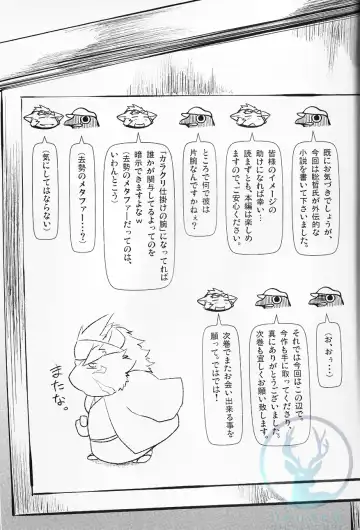 既にお気づきでしょうが、
今回は聡哲氏が外伝的な
小説を書いて下さいました。
皆様のイメージの
助けになれば幸い…
読まずとも、本編は楽しめ
ますので、ご安心ください。
ところで何で彼は
片腕なんですかねぇ?
「カラクリ仕掛けの腕」になってれば
誰かが関与してるよってのを
暗示できますよなw
(去勢のメタファーだってのは、
いわんとこう)
(去勢のメタファー…?)
(気にしてはならない)
(お、おぅ…)
それでは今回はこの辺で、
今作も手に取ってくださり、
真にありがとうございます。
次巻も宜しくお願い致します。
次巻でまたお会い出来る事を
願って。ではでは!
またな。